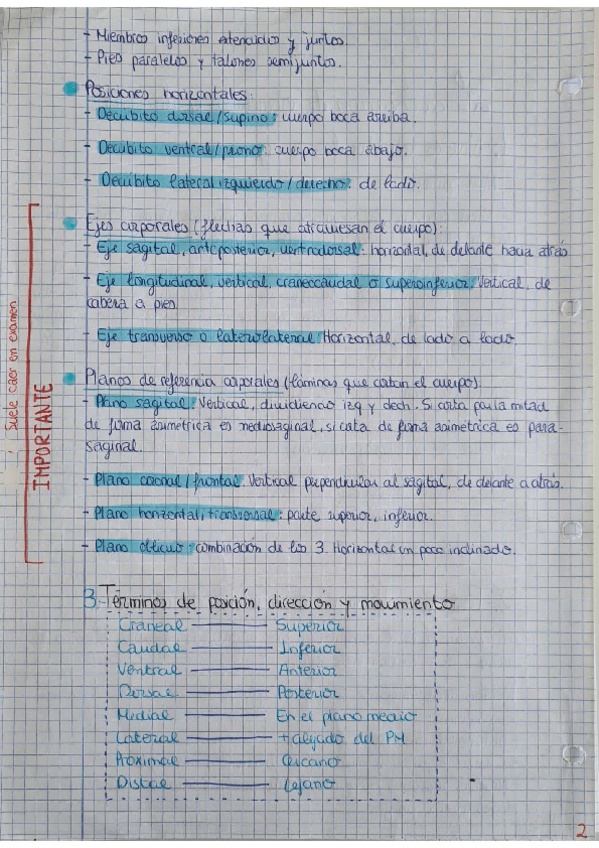 - Miembros inferiores extendidos y juntos.
- Pies paralelos y talones semijuntos.
Posiciones horizontales:
- Decúbito dorsal/supino: cuerpo boca arriba.
- Decúbito ventral/prono: cuerpo boca abajo.
- Decúbito lateral izquierdo/derecho: de lado.
Ejes corporales (flechas que atraviesan el cuerpo):
- Eje sagital, anteposterior, ventrodorsal: horizontal, de delante hacia atrás
- Eje longitudinal, vertical, craneocaudal o superoinferior: Vertical, de
cabeza a pies
- Eje transverso o laterolateral: Horizontal, de lado a lado
Planos de referencia corporales (láminas que cortan el cuerpo):
- Plano sagital: Vertical, dividiendo izq y dech. Si corta por la mitad
de forma simétrica es mediosaginal, si corta de forma asimétrica es para-
saginal.
- Plano coronal/frontal: Vertical perpendicular al sagital, de delante a atrás.
- Plano horizontal, transversal: parte superior, inferior.
- Plano oblicuo: combinación de los 3. Horizontal un poco inclinado.
Suele caer en examen
IMPORTANTE
3.- Términos de posición, dirección y movimiento
Craneal — Superior
Caudal — Inferior
Ventral — Anterior
Dorsal — Posterior
Medial — En el plano medio
Lateral — + alejado del PM
Proximal — Cercano
Distal — Lejano
2